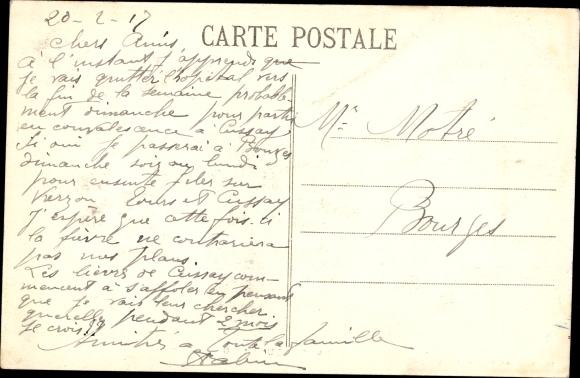 20-2-17
CARTE POSTALE
Chers Amis,
à l'instant j'apprends que
je vais quitter l'hopital vers
la fin de la semaine probable-
ment dimanche pour partir
en convalescence à Cussay
Si oui je passerai à Bourges
dimanche soir ou lundi
pour ensuite filer sur
Vierzon Tours et Cussay
J'espère que cette fois-ci
la fièvre ne contrariera
pas mes plans.
Les lièvres de Cussay com-
mencent à s'affoler en pensant
que je vais leur chercher
querelle pendant 2 mois
je crois!!
Amitiés à toute la famille
Mr Motré
Bourges